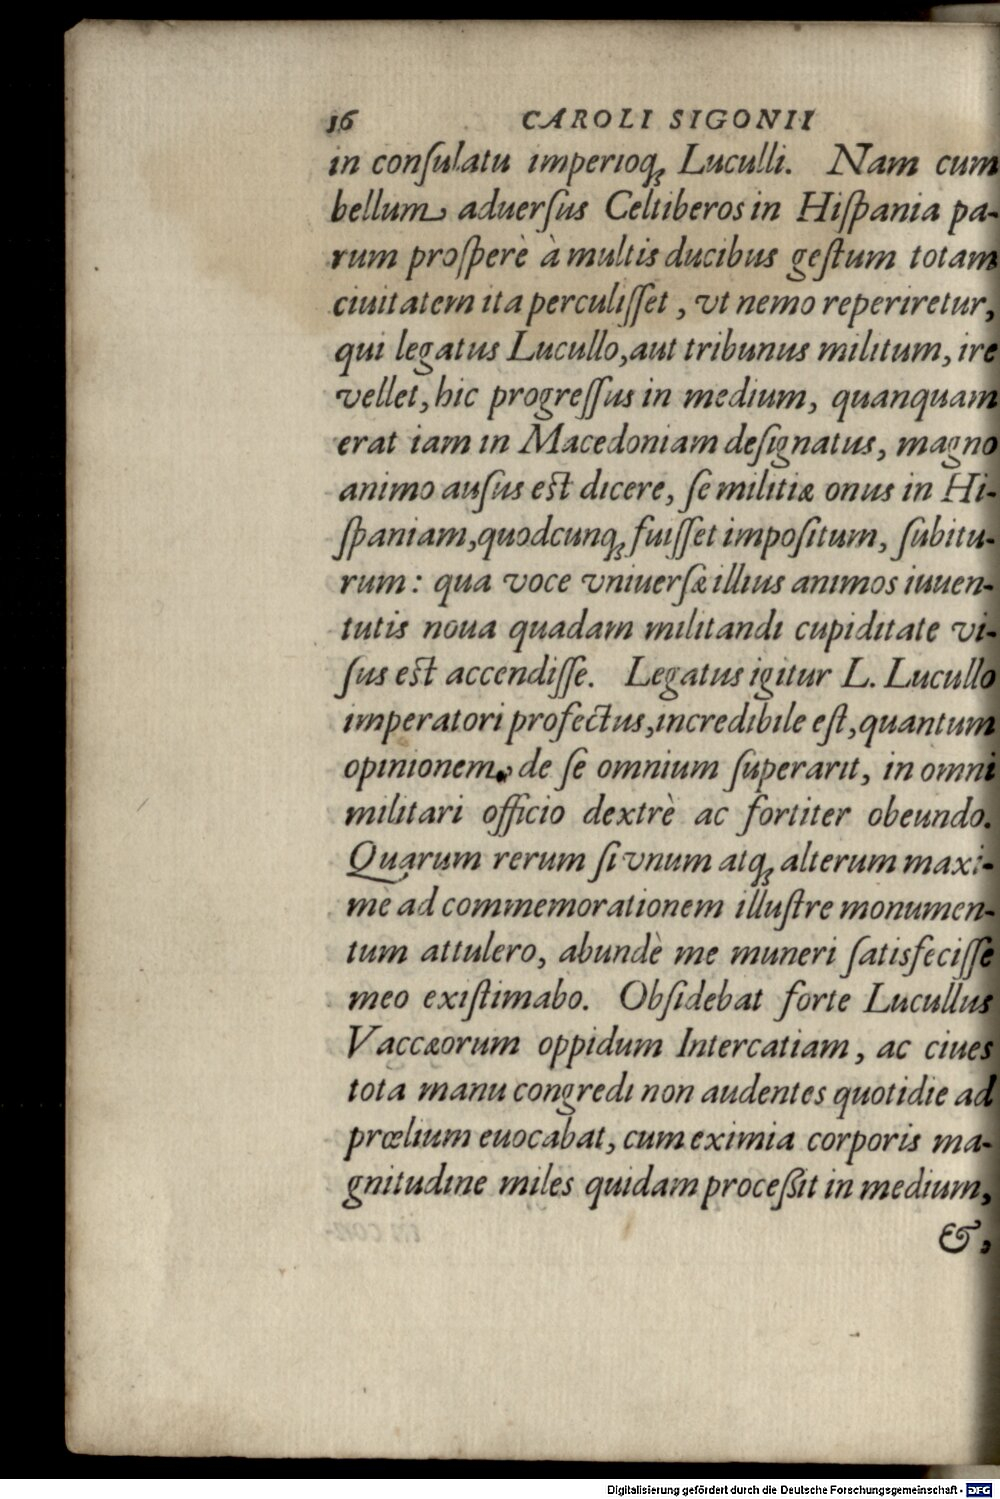 16 CAROLI SIGONII
in conſulatu imperioq; Luculli. Nam cum
bellum aduerſus Celtiberos in Hiſpania pa-
rum proſperè à multis ducibus geſtum totam
ciuitatem ita perculiſſet, vt nemo reperiretur,
qui legatus Lucullo, aut tribunus militum, ire
vellet, hic progreſſus in medium, quanquam
erat iam in Macedoniam deſignatus, magno
animo auſus eſt dicere, ſe militiæ onus in Hi-
ſpaniam, quodcunq; fuiſſet impoſitum, ſubitu-
rum: qua voce vniuerſæ illius animos iuuen-
tutis noua quadam militandi cupiditate vi-
ſus eſt accendiſſe. Legatus igitur L. Lucullo
imperatori profectus, incredibile eſt, quantum
opinionem de ſe omnium ſuperarit, in omni
militari officio dextrè ac fortiter obeundo.
Quarum rerum ſi vnum atq; alterum maxi-
me ad commemorationem illuſtre monumen-
tum attulero, abundè me muneri ſatisfeciſſe
meo exiſtimabo. Obſidebat forte Lucullus
Vaccæorum oppidum Intercatiam, ac ciues
tota manu congredi non audentes quotidie ad
prœlium euocabat, cum eximia corporis ma-
gnitudine miles quidam proceßit in medium,
&,
Digitalisierung gefördert durch die Deutsche Forschungsgemeinschaft - DFG